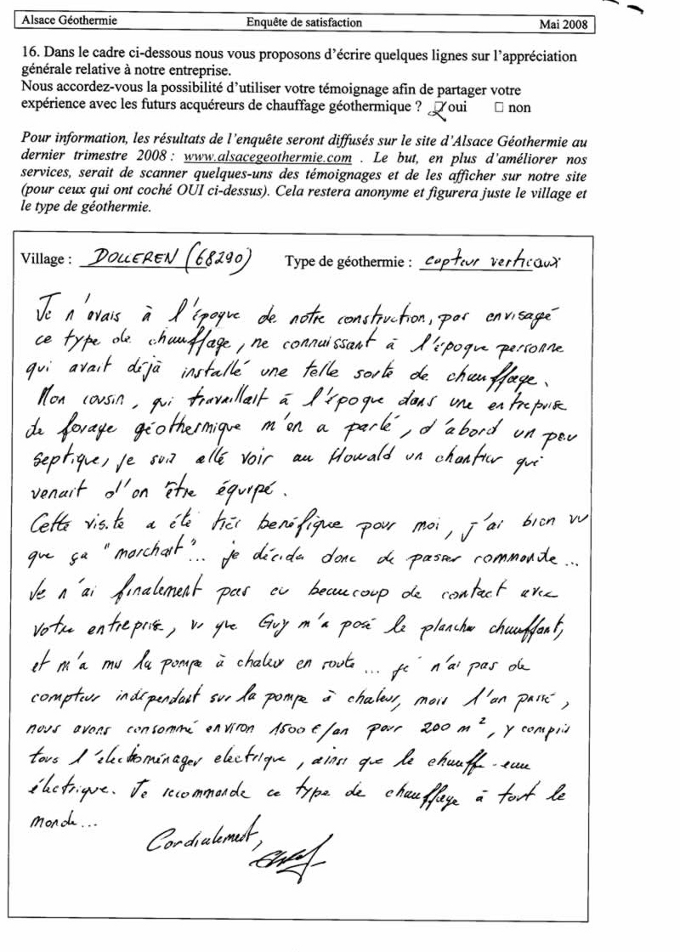 Alsace Géothermie Enquête de satisfaction Mai 2008
16. Dans le cadre ci-dessous nous vous proposons d'écrire quelques lignes sur l'appréciation
générale relative à notre entreprise.
Nous accordez-vous la possibilité d'utiliser votre témoignage afin de partager votre
expérience avec les futurs acquéreurs de chauffage géothermique ? ☒ oui ☐ non
Pour information, les résultats de l'enquête seront diffusés sur le site d'Alsace Géothermie au
dernier trimestre 2008 : www.alsacegeothermie.com . Le but, en plus d'améliorer nos
services, serait de scanner quelques-uns des témoignages et de les afficher sur notre site
(pour ceux qui ont coché OUI ci-dessus). Cela restera anonyme et figurera juste le village et
le type de géothermie.
Village : DOLLEREN (68290) Type de géothermie : capteur verticaux
Je n'avais à l'époque de notre construction, pas envisagé
ce type de chauffage, ne connaissant à l'époque personne
qui avait déjà installé une telle sorte de chauffage.
Mon cousin, qui travaillait à l'époque dans une entreprise
de forage géothermique m'en a parlé, d'abord un peu
septique, je suis allé voir au Howald un chantier qui
venait d'en être équipé.
Cette visite a été très bénéfique pour moi, j'ai bien vu
que ça "marchait"... je décida donc de passer commande...
Je n'ai finalement pas eu beaucoup de contact avec
votre entreprise, vu que Guy m'a posé le plancher chauffant,
et m'a mis la pompe à chaleur en route... je n'ai pas de
compteur indépendant sur la pompe à chaleur, mais l'an passé,
nous avons consommé environ 1500 €/an pour 200 m², y compris
tous l'électroménager electrique, ainsi que le chauffe-eau
électrique. Je recommande ce type de chauffage à tout le
monde...
Cordialement,